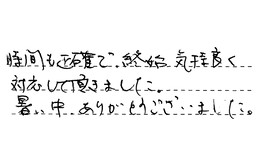 時間も正確で、終始気持良く
対応して頂きました。
暑い中、ありがとうございました。